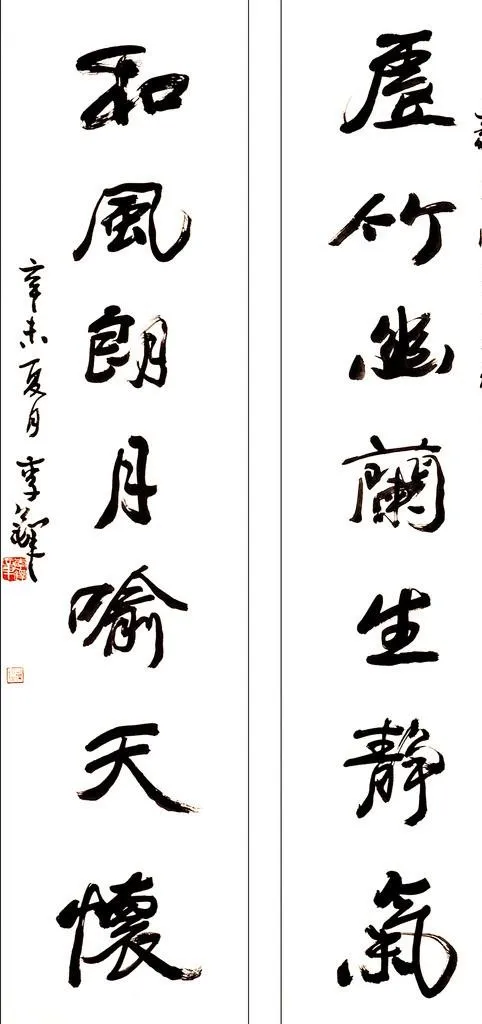 虛竹幽蘭生靜氣
和風朗月喻天懷
辛未夏月 李鐸